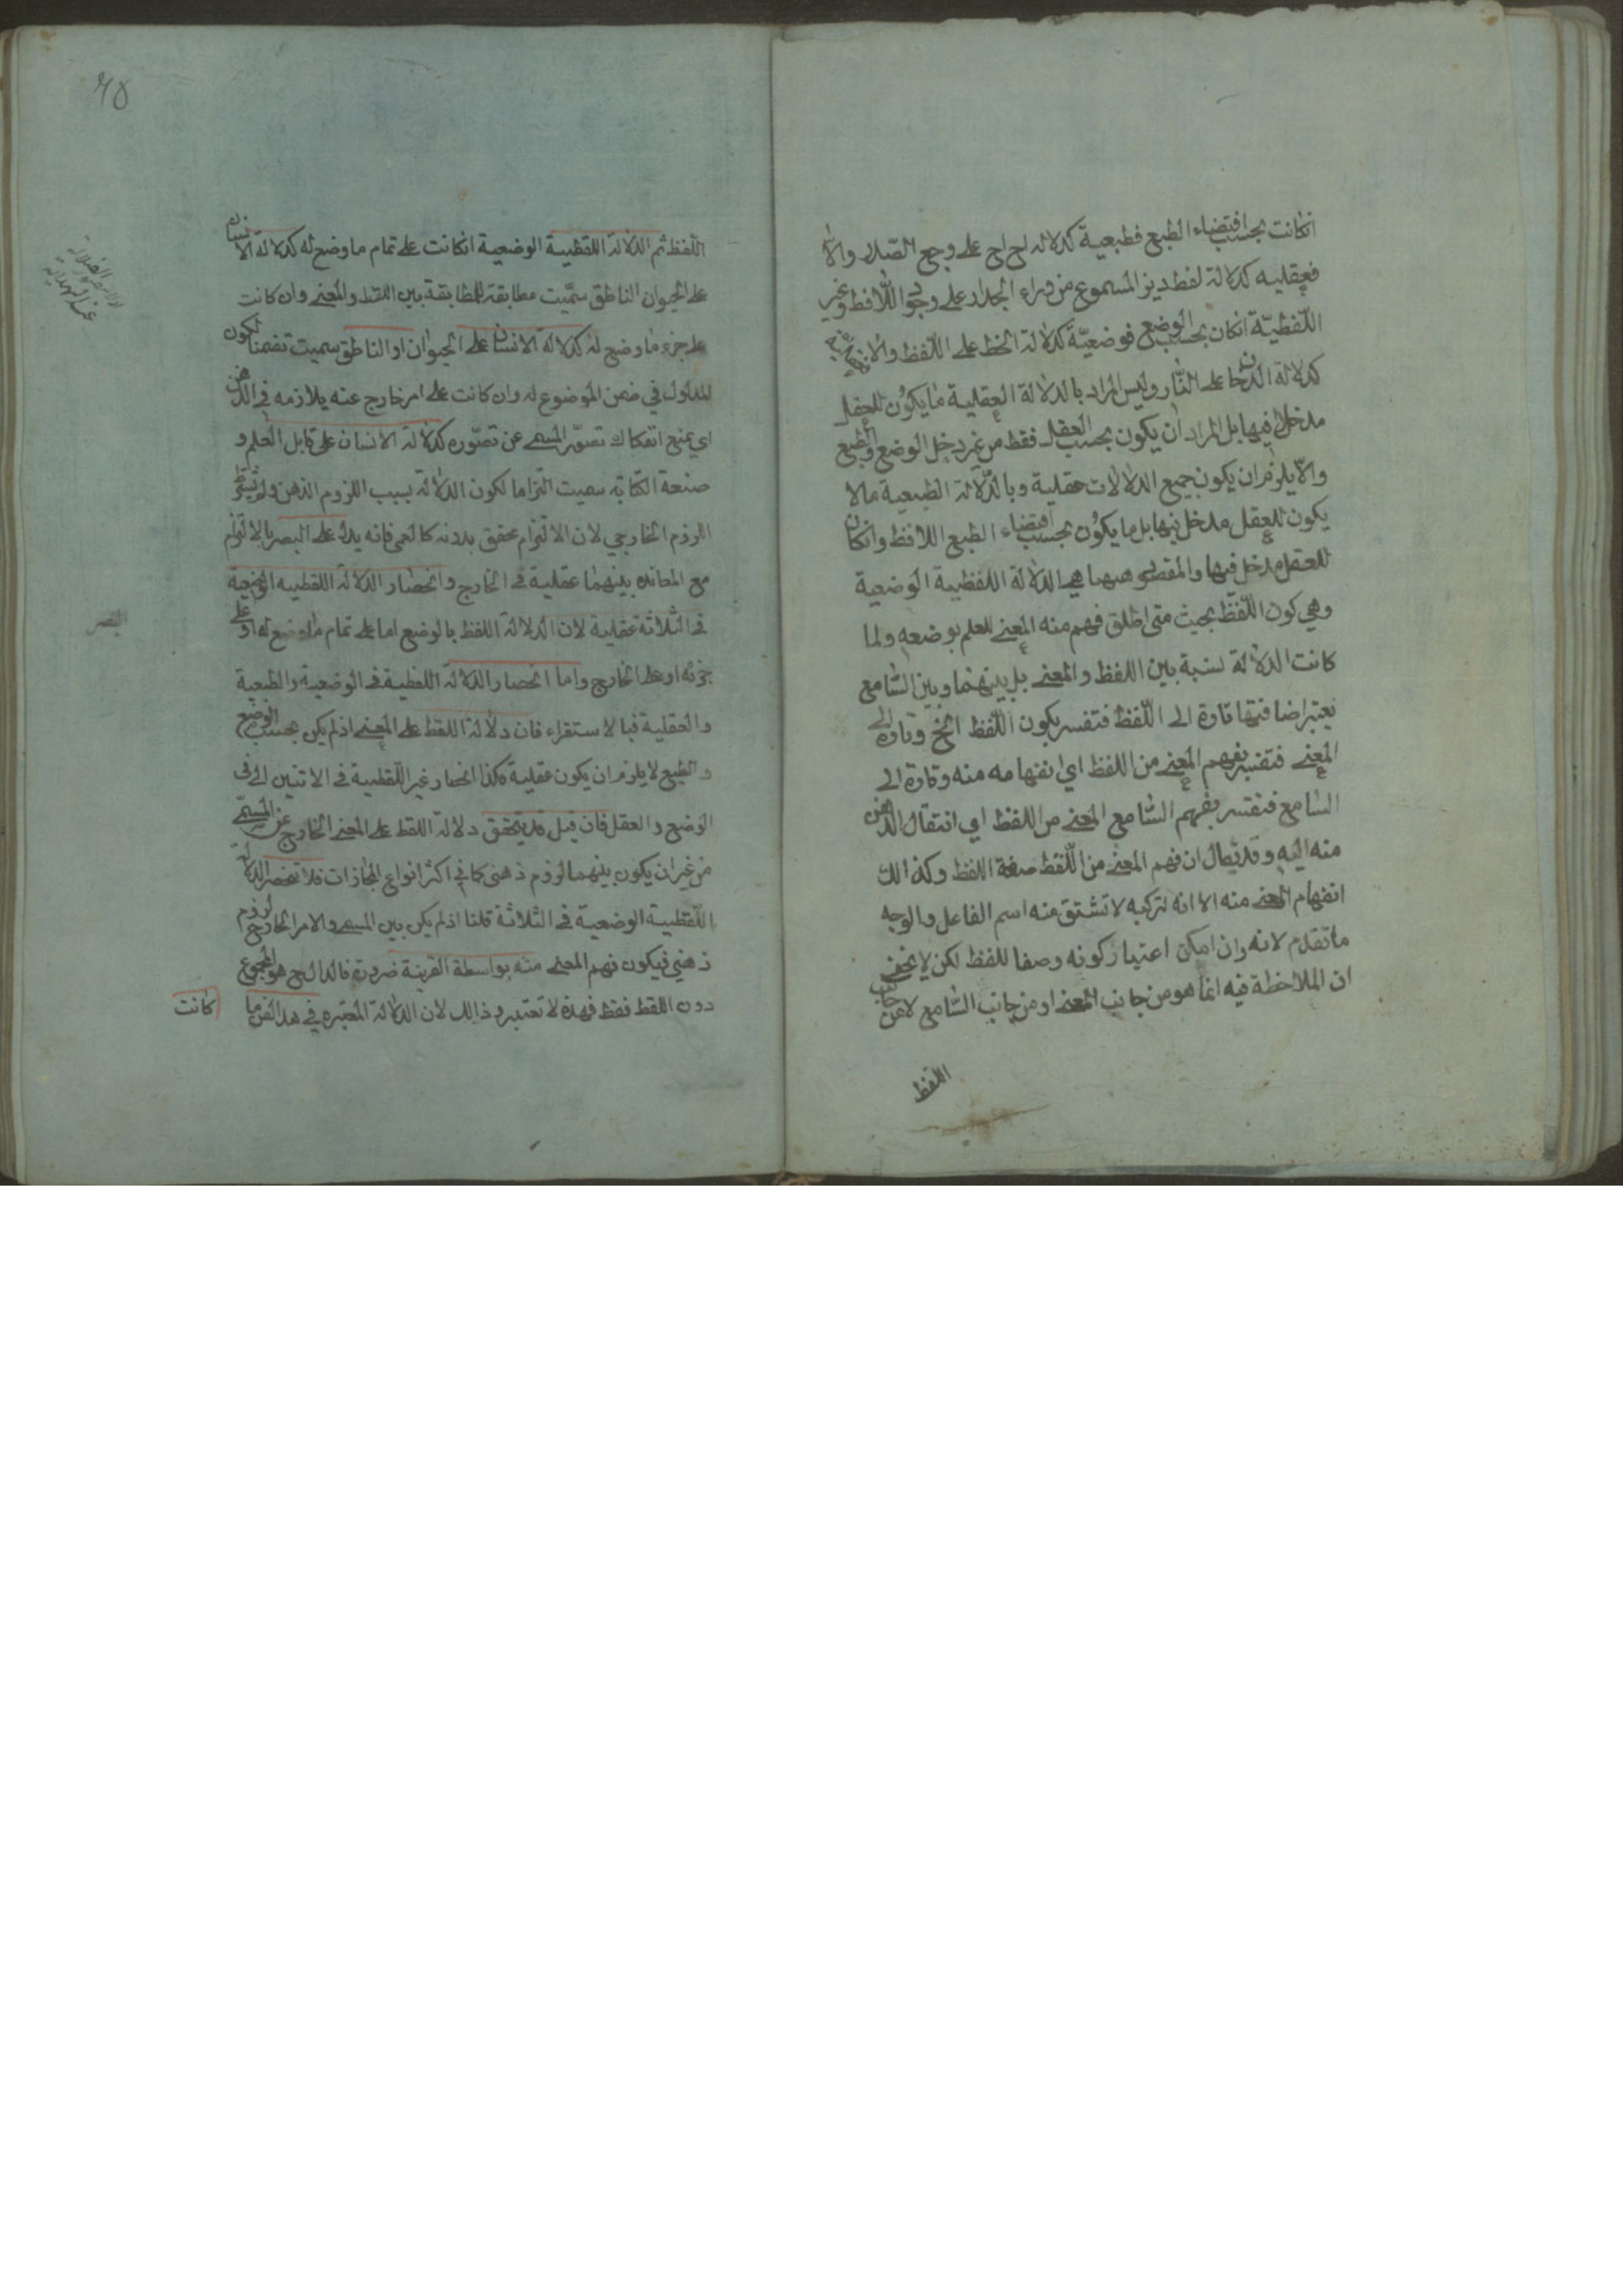 انكانت بحسب اقتضاء الطبع فطبعية كدلالة اح اح على وجع الصدر والا
فعقليه كدلالة لفظ ديز المسموع من وراء الجدار على وجود اللافظ وغير
اللفظية انكان بحسب الوضع فوضعية كدلالة الخط على اللفظ والا
كدلالة الدخان على النار وليس المراد بالدلالة العقلية ما يكون للعقل
مدخل فيها بل المراد ان يكون بحسب العقل فقط من غير دخل الوضع والطبع
والا يلزم ان يكون جميع الدلالات عقلية وبالدلالة الطبيعية مالا
يكون للعقل مدخل فيها بل ما يكون بحسب اقتضاء الطبع اللافظ وانكان
للعقل مدخل فيها والمقصود ههنا هي الدلالة اللفظية الوضعية
وهي كون اللفظ بحيث متى اطلق فهم منه المعنى للعلم بوضعه ولما
كانت الدلالة نسبة بين اللفظ والمعنى بل بينهما وبين السامع
يعتبر اضافتها تارة الى اللفظ فتفسر بكون اللفظ الخ وتارة الى
المعنى فتفسر بفهم المعنى من اللفظ اي انفهامه منه وتارة الى
السامع فتفسر بفهم السامع المعنى من اللفظ اي انتقال الذهن
منه اليه وقد يقال ان فهم المعنى من اللفظ صفة اللفظ وكذالك
انفهام المعنى منه الا انه لتركبه لا تشتق منه اسم الفاعل والوجه
ما تقدم لانه وان امكن اعتبار كونه وصفا للفظ لكن لا يخفى
ان الملاحظة فيه انما هو من جانب المعنى او من جانب السامع لا من جانب
اللفظ
٦٥
اللفظ ثم الدلالة اللفظية الوضعية انكانت على تمام ما وضع له كدلالة الانسان
على الحيوان الناطق سميت مطابقة للمطابقة بين اللفظ والمعنى وان كانت
على جزء ما وضع له كدلالة الانسان على الحيوان او الناطق سميت تضمنا لكون
المدلول في ضمن الموضوع له وان كانت على امر خارج عنه يلازمه في الذهن
اي يمنع انفكاك تصور المسمى عن تصوره كدلالة الانسان على قابل العلم و
صنعة الكتابة سميت التزاما لكون الدلالة بسبب اللزوم الذهن ولم يشترط
اللزوم الخارجي لان الالتزام تحقق بدونه كالعمى فانه يدل على البصر بالالتزام
مع المعانده بينهما عقلية في الخارج وانحصار الدلالة اللفظيه الوضعية
في الثلاثة عقلية لان الدلالة اللفظ بالوضع اما على تمام ما وضع له او على
جزئه او على الخارج واما انحصار الدلالة اللفظية في الوضعية والطبعية
والعقلية فبالاستقراء فان دلالة اللفظ على المعنى اذ لم يكن بحسب الوضع
والطبع لا يلزم ان يكون عقلية وكذا انحصار غير اللفظية في الاثنين اى في
الوضع والعقل فان قيل قد يتحقق دلالة اللفظ على المعنى الخارج عن المسمى
من غير ان يكون بينهما لزوم ذهنى كما في اكثر انواع المجازات فلا تنحصر الدلالة
اللفظية الوضعية في الثلاثة قلنا اذ لم يكن بين المسمى والامر الخارج لزوم
ذهني فيكون فهم المعنى منه بواسطة القرينة ضرورة فالدال ح هو المجموع
دون اللفظ فقط فهذه لا تعتبر وذالك لان الدلالة المعتبره في هذالفن ما
كانت